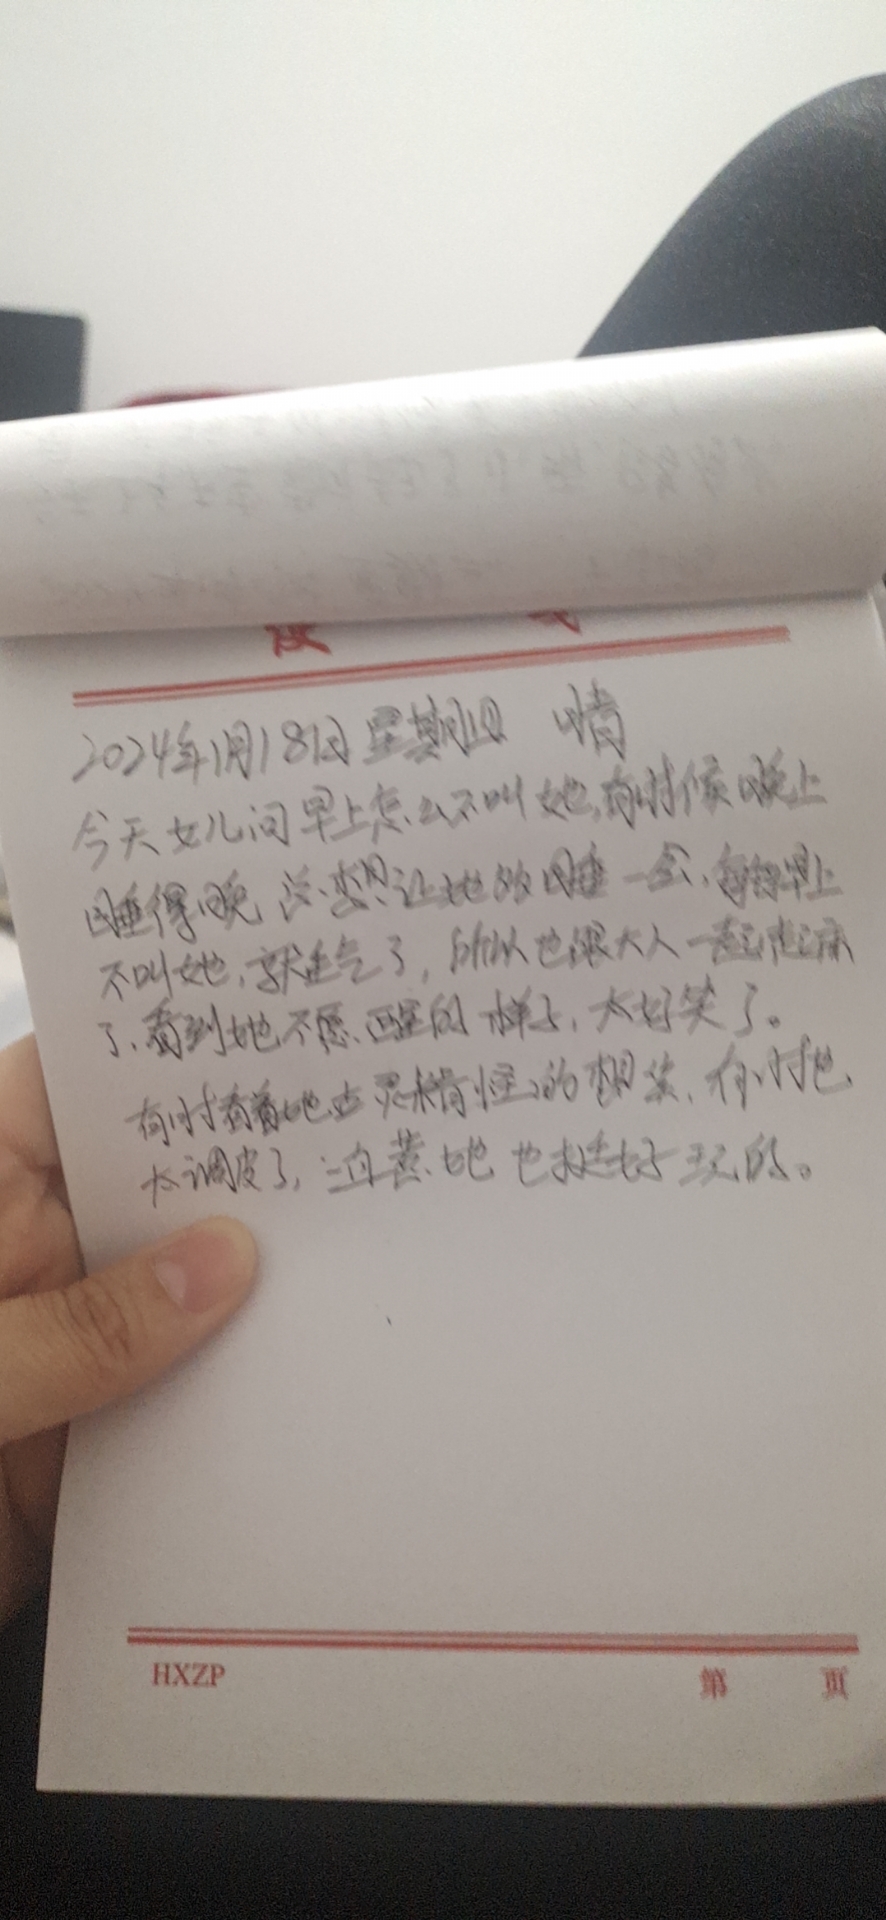 2024年1月18日星期四 晴
今天女儿问早上怎么不叫她,有时候晚上
睡得晚 总想让她多睡一会,每每早上
不叫她,就生气了,所以也跟大人一起起床
了,看到她不愿醒的样子,太好笑了。
有时看着她古灵精怪的想法,有时也
太调皮了,逗她也挺好玩的。
HXZP
第 页